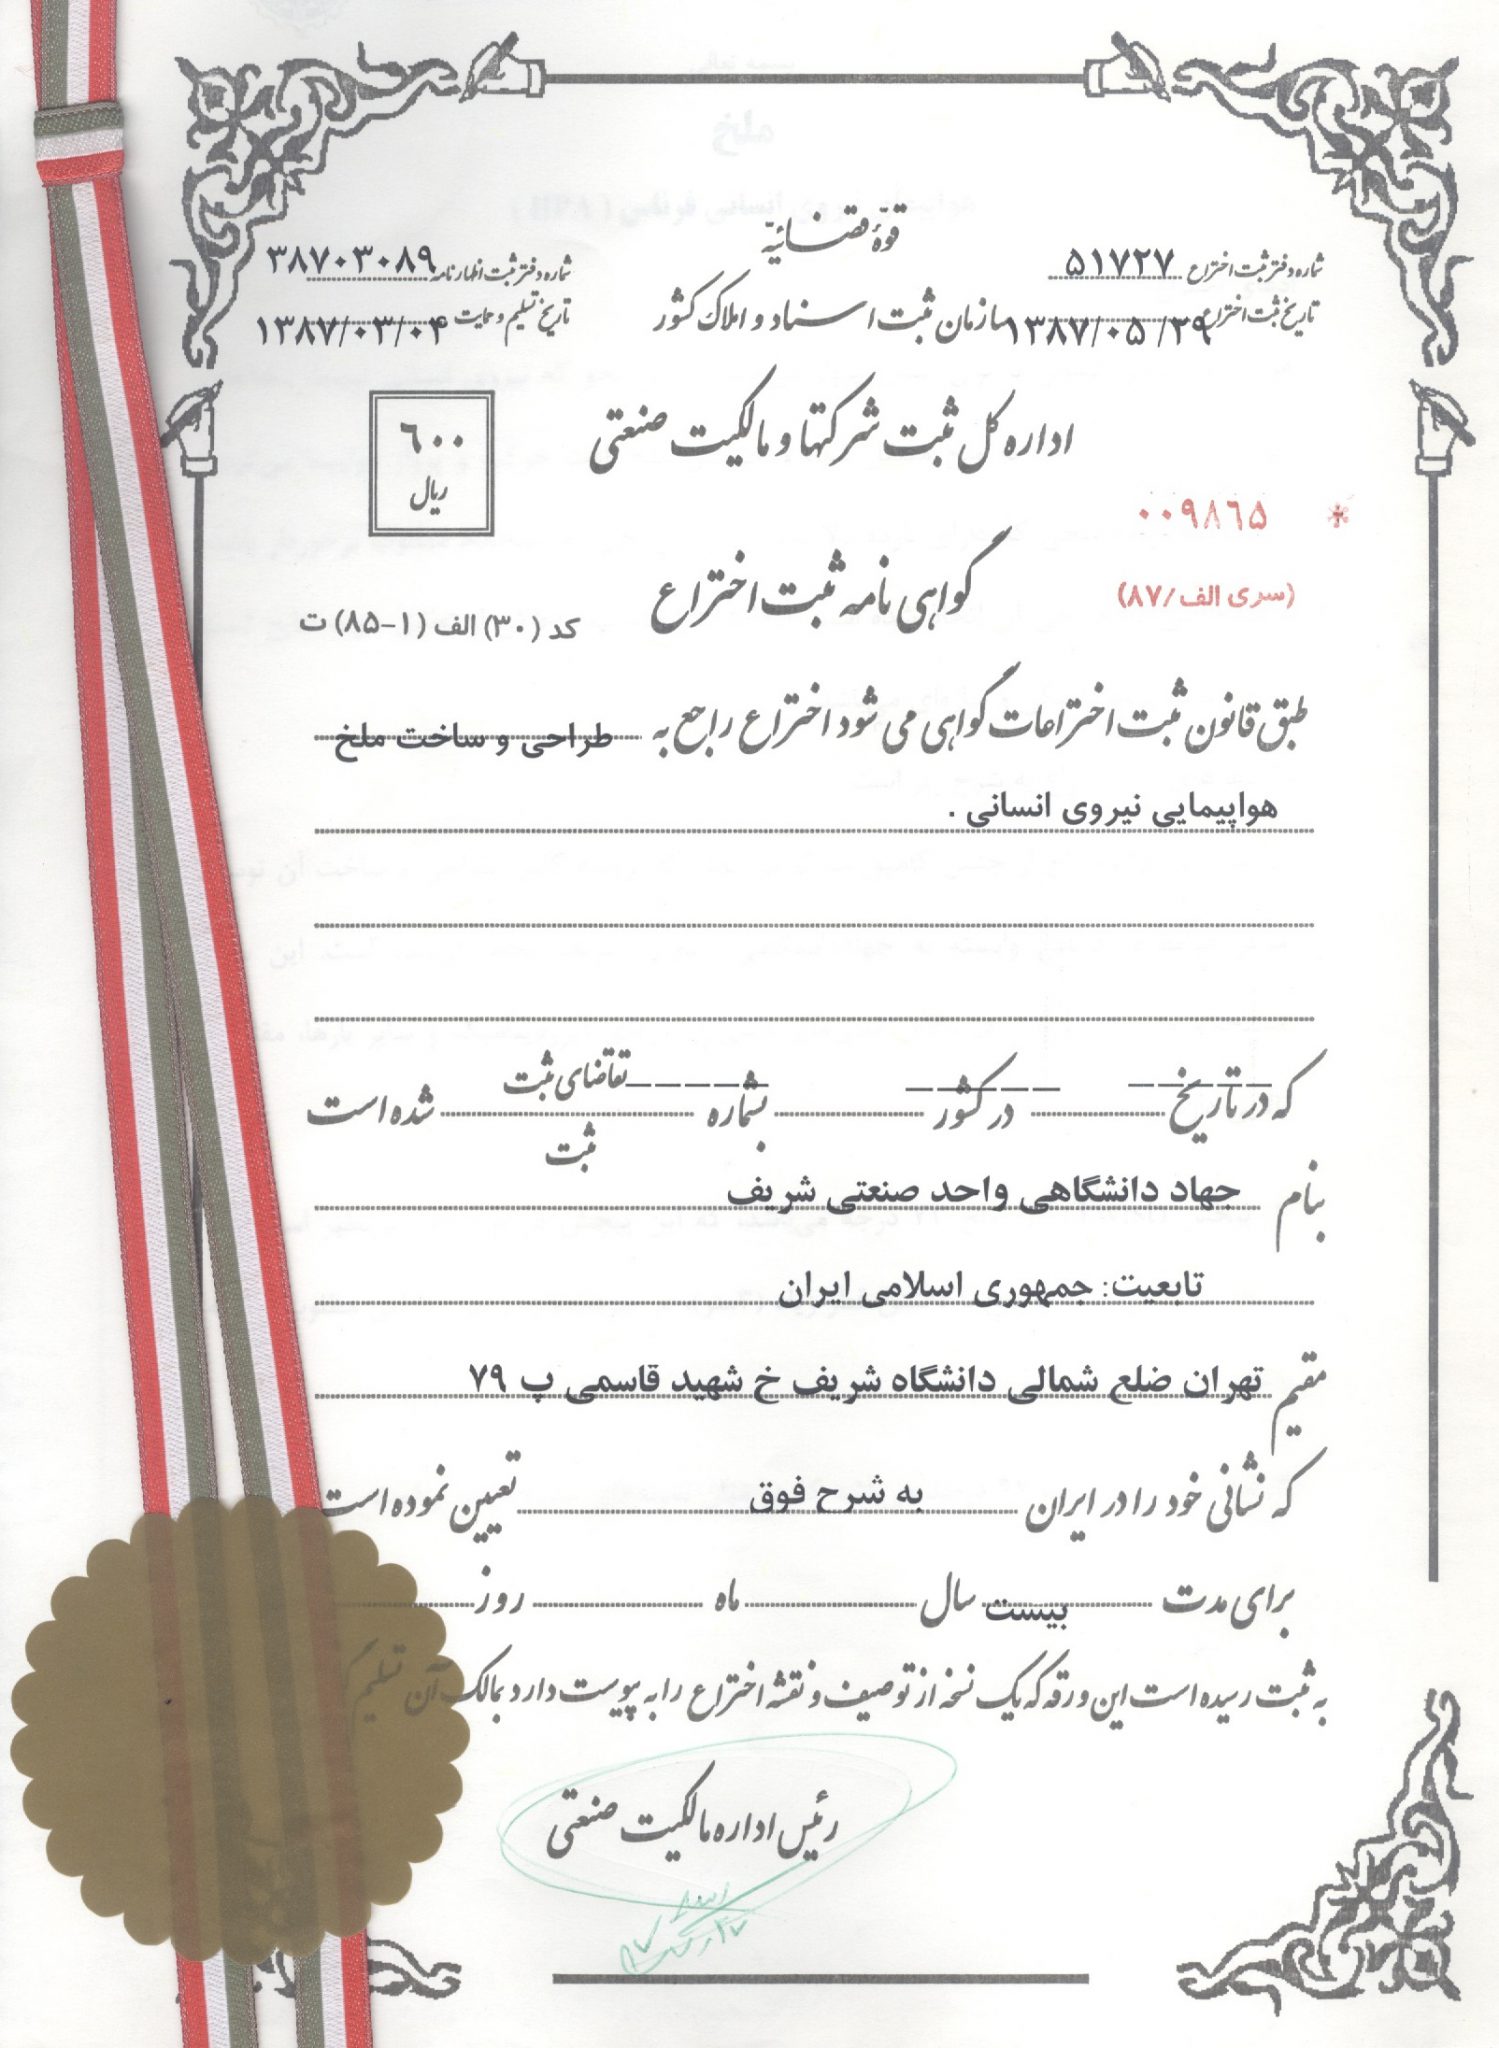 قوّهٔ قضائیّه
شماره دفتر ثبت اختراع ۵۱۷۲۷
شماره دفتر ثبت اظهارنامه ۳۸۷۰۳۰۸۹
سازمان ثبت اسناد و املاک کشور
تاریخ ثبت اختراع ۱۳۸۷/۰۵/۲۹
تاریخ تسلیم و حمایت ۱۳۸۷/۰۳/۰۴
اداره کل ثبت شرکتها و مالکیت صنعتی
۶۰۰
ریال
* ۰۰۹۸۶۵
(سری الف/۸۷)
گواهی نامه ثبت اختراع
کد (۳۰) الف (۱-۸۵) ت
طبق قانون ثبت اختراعات گواهی می شود اختراع راجع به طراحی و ساخت ملخ
هواپیمایی نیروی انسانی .
که در تاریخ ------ در کشور ------ بشماره ------ تقاضای ثبت شده است
ثبت
بنام جهاد دانشگاهی واحد صنعتی شریف
تابعیت: جمهوری اسلامی ایران
مقیم تهران ضلع شمالی دانشگاه شریف خ شهید قاسمی پ ۷۹
که نشانی خود را در ایران به شرح فوق تعیین نموده است
برای مدت بیست سال ماه روز
به ثبت رسیده است این ورقه که یک نسخه از توصیف و نقشه اختراع را به پیوست دارد بمالک آن تسلیم
رئیس اداره مالکیت صنعتی